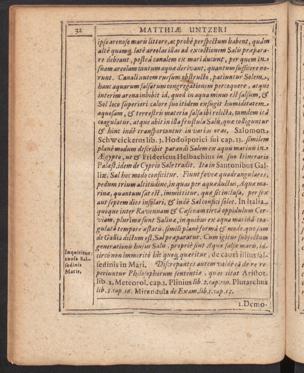 32 MATTHIÆ UNTZERI
ipso arenoso maris littore, ac probè perspectum habent, quàm
altè quamq; latè areolas illas ad excoctionem Salis præpara-
re debeant, postea canalem ex mari ducunt, per quem in
suam areolam tantum aquæ derivant, quantum sufficere no-
runt. Canali autem rursum obstructo, patiuntur Solem,
hanc aquarum salsarum congregationem percoquere, atque
interim arena imbibit id, quod in aqua minus est salsum, &
Sol luce superiori calore suo itidem exsugit humiditatem
aqueam, & terrestris materia salsa ibi relicta, tandem ita
coagulatur, atque abit in ista frustula Salis, quæ colliguntur
& hinc inde transportantur in varias oras, Salomon
Schweickerus lib. 3. Hodoiporici sui cap. 13. similem
planè modum describit parandi Salem ex aqua marina in
Egypto, ut & Fridericus Helbachius in suo Itinerario
Palæst. idem de Cypris Sale tradit. Ita in Santonibus Gal-
liæ, Sal hoc modo conficitur. Fiunt foveæ quadrangulares,
pedum trium altitudine, in quas per aquæductus, aqua mari-
na, quantum sat est, immittitur, quæ sic inclusa, per sex
aut septem dies insolari, & inde Sal confici solet. In Italia,
quoque inter Ravennam & Caseam circà oppidulum Cer-
viam, plurimæ sunt Salinæ, in quibus ex aqua maris Sal coa-
gulatur tempore æstatis, simili planè formâ & modo, quo jam
de Gallis dictum est, Sal præparatur. Cum igitur subjectum
generationis hujus Salis, propriè sint aquæ salsæ maris, id-
circò non immeritò hîc quoq; quæritur, de causâ istius sal-
sedinis in Mari. Discrepantes autem valdè eâ de re re-
periuntur Philosophorum sententiæ, quas citat Aristot.
lib. 2. Meteorol. cap. 1. Plinius lib. 2. cap. 100. Plutarchus
lib. 3. cap. 16. Mirandula de Exam. lib. 5. cap. 15.
Inquiritur
causa Sal-
sedinis
Maris.
1. Demo-